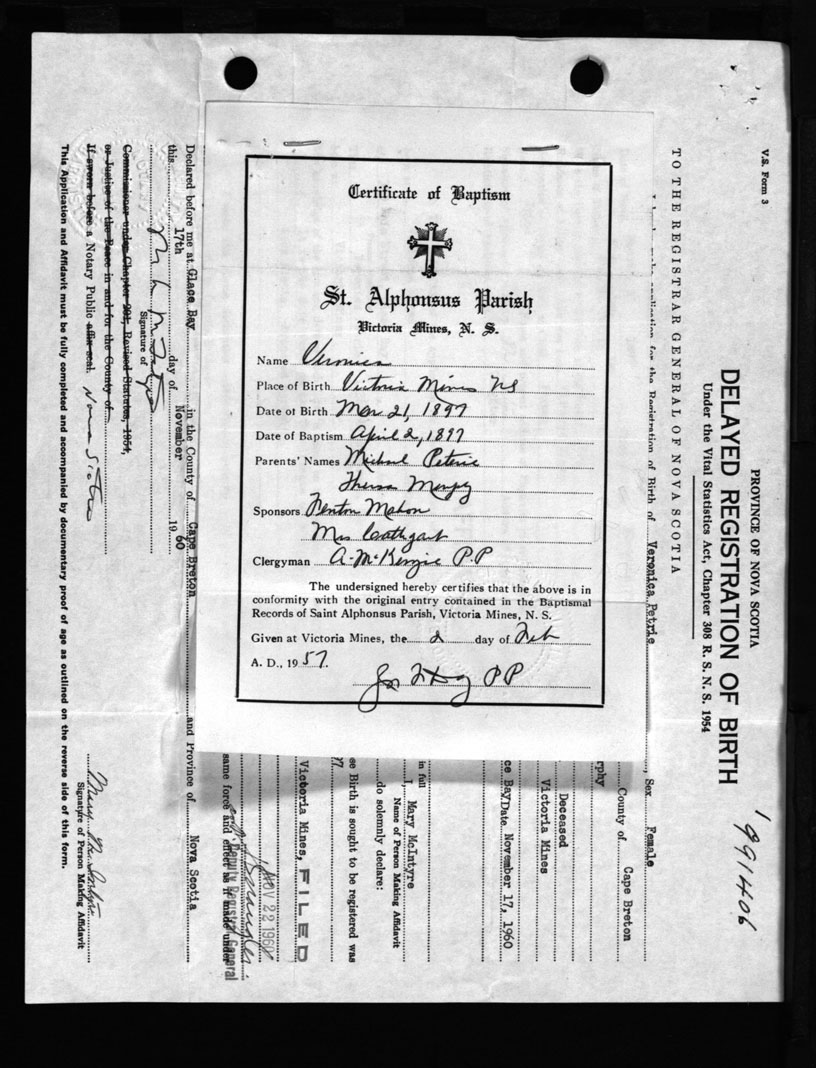 Certificate of Baptism
St. Alphonsus Parish
Victoria Mines, N. S.
Name Veronica
Place of Birth Victoria Mines NS
Date of Birth Mar 21, 1897
Date of Baptism April 2, 1897
Parents' Names Michael Petrie
Theresa
Sponsors Fenton Mahon
Mrs Cathgart
Clergyman A. McKenzie P.P
The undersigned hereby certifies that the above is in
conformity with the original entry contained in the Baptismal
Records of Saint Alphonsus Parish, Victoria Mines, N. S.
Given at Victoria Mines, the 2 day of Feb
A. D., 1957.
PP
V.S. Form 3
PROVINCE OF NOVA SCOTIA
DELAYED REGISTRATION OF BIRTH
Under the Vital Statistics Act, Chapter 308 R. S. N. S. 1954
1991406
TO THE REGISTRAR GENERAL OF NOVA SCOTIA
application for the Registration of Birth of Veronica Petrie, Sex Female
County of Cape Breton
rphy
Deceased
Victoria Mines
ce Bay Date November 17, 1960
I, Mary McIntyre
in full Name of Person Making Affidavit
do solemnly declare:
se Birth is sought to be registered was
Victoria Mines, FILED
NOV 22 1960
Deputy Registrar General
same force and effect as if made under
Declared before me at Glace Bay in the County of Cape Breton and Province of Nova Scotia
this 17th day of November 1960
Signature of
Commissioner under Chapter 291, Revised Statutes, 1954,
or Justice of the Peace in and for the County of
If sworn before a Notary Public affix seal. Nova Scotia
Mary McIntyre
Signature of Person Making Affidavit
This Application and Affidavit must be fully completed and accompanied by documentary proof of age as outlined on the reverse side of this form.